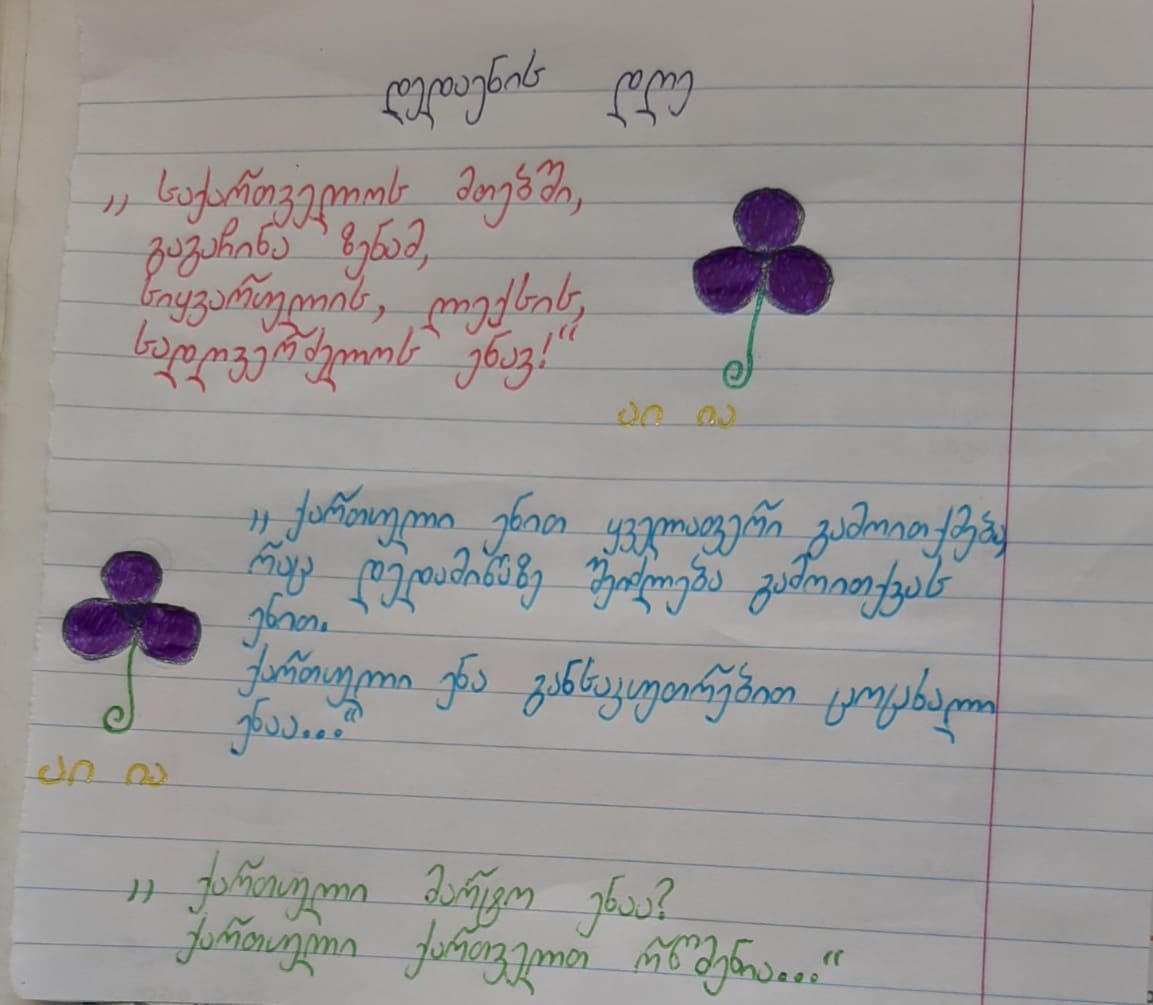 დედაენის დღე
„ საქართველოს მთებში,
გაგაჩინა ზენამ,
სიყვარულის, ლექსის,
სადღეგრძელოს ენავ!“
აი ია
„ ქართული ენით ყველაფერი გამოითქმება,
რაც დედამიწაზე შეიძლება გამოითქვას
ენით.
ქართული ენა განსაკუთრებით ცოცხალი
ენაა...“
აი ია
„ ქართული მარტო ენაა?
ქართული ქართველთ რწმენა...“